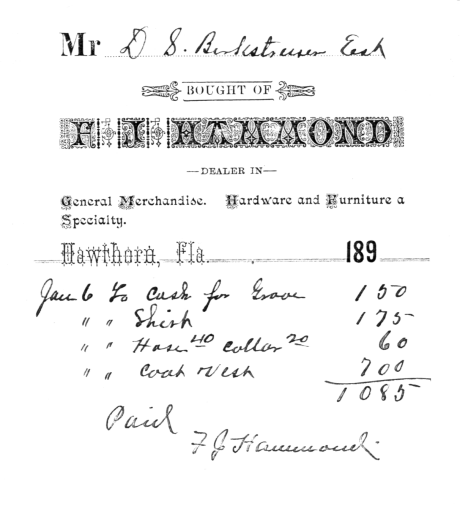 Mr D. S. Birkstreiser Esq
BOUGHT OF
F. J. HAMMOND
—DEALER IN—
General Merchandise. Hardware and Furniture a
Specialty.
Hawthorn, Fla. 189
Jan 6 To Cash for Grove 1 50
" " Shirt 1 75
" " Hose 40 collar 20 60
" " Coat Vest 7 00
10 85
Paid
F J Hammond